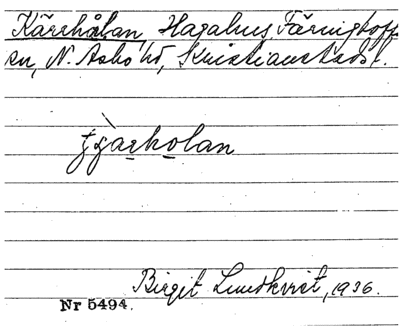 Kärrhålan, Hagahus, Färingtoft
sn, N. Åsbo hd, Kristianstads l.
tjarholan
Birgit Lundkvist, 1936.
Nr 5494.